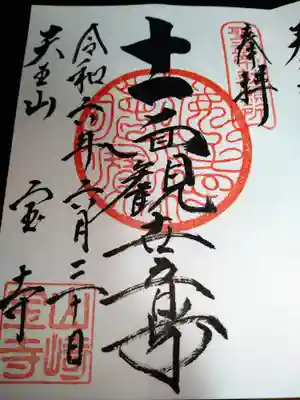 奉拝
十一面観世音
令和六年六月二十日
天王山
宝寺
山崎
宝寺